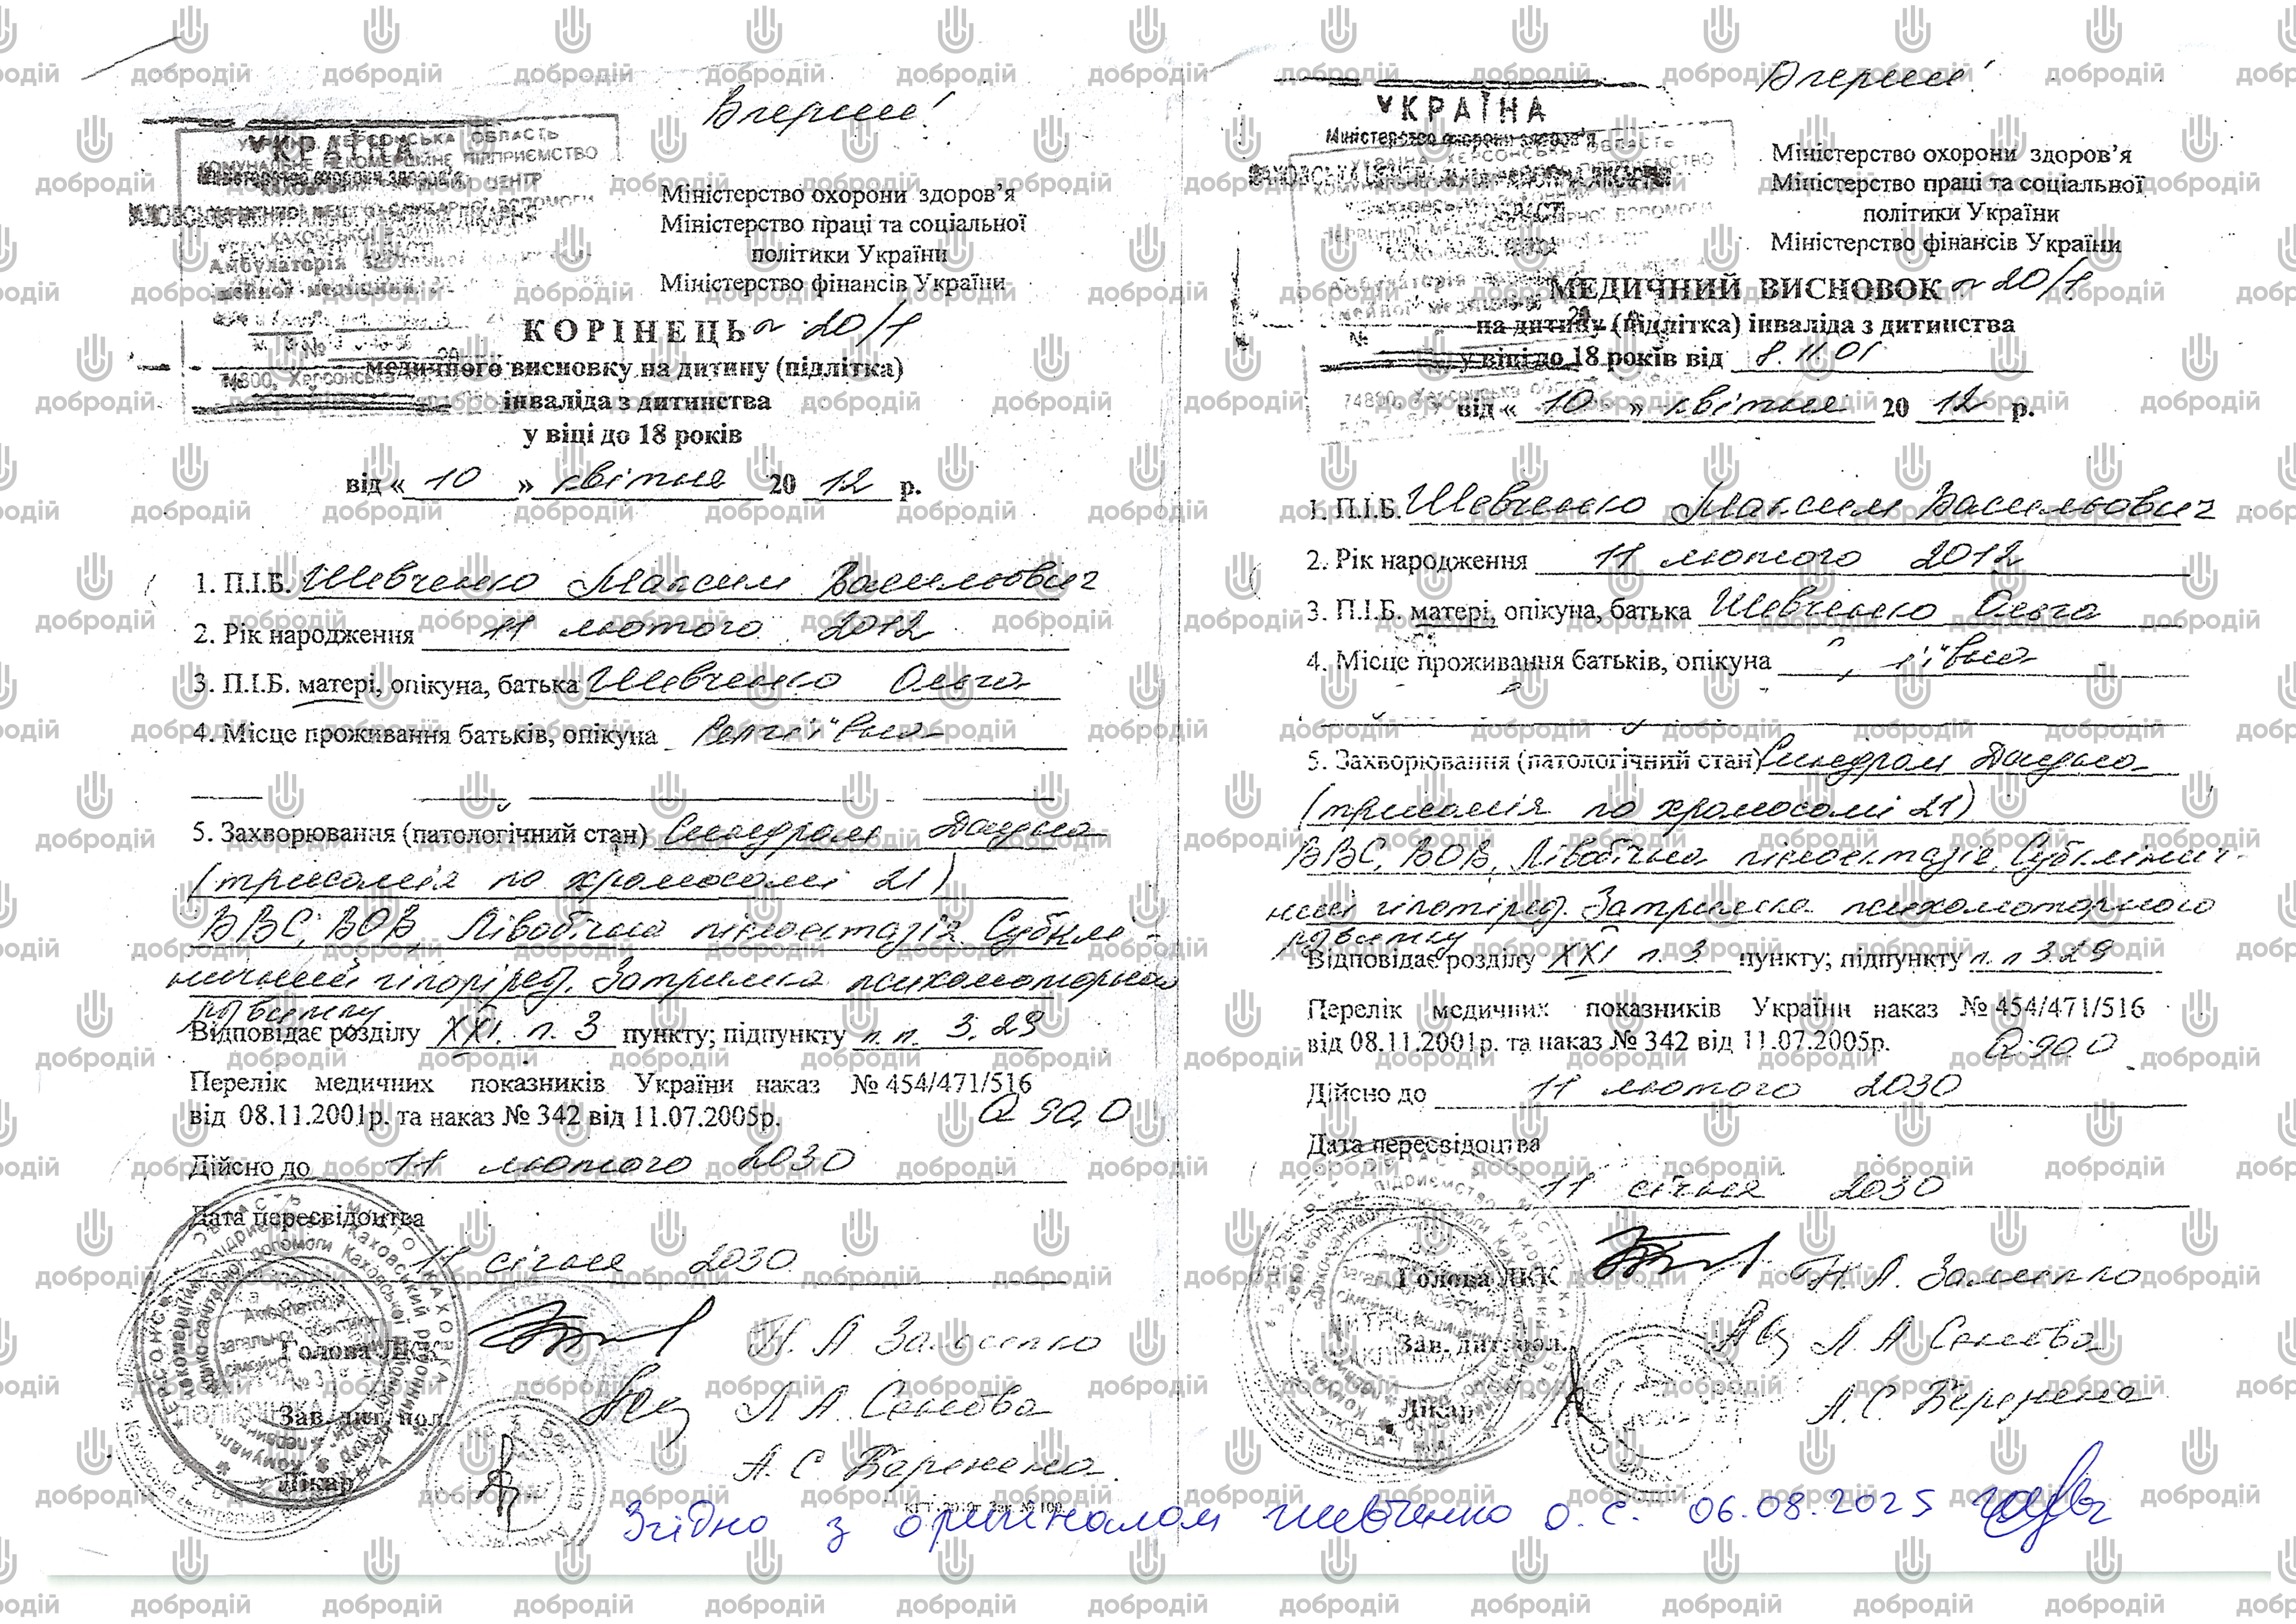 Вперше!
УКРАЇНА
Міністерство охорони здоров’я
Міністерство праці та соціальної
політики України
Міністерство фінансів України
КОРІНЕЦЬ № 20/1
медичного висновку на дитину (підлітка)
інваліда з дитинства
у віці до 18 років
від « 10 » квітня 20 12 р.
1. П.І.Б. Шевченко Максим Васильович
2. Рік народження 11 лютого 2012
3. П.І.Б. матері, опікуна, батька Шевченко Ольга
4. Місце проживання батьків, опікуна Сергіївна
5. Захворювання (патологічний стан) Синдром Дауна
(трисомія по хромосомі 21)
ВВС, ВОВ, Лівобічна пієлоектазія. Субклі-
нічний гіпотіреоз. Затримка психомоторного
розвитку
Відповідає розділу XXI п. 3 пункту; підпункту п.п. 3.29
Перелік медичних показників України наказ № 454/471/516
від 08.11.2001р. та наказ № 342 від 11.07.2005р. Q 90,0
Дійсно до 11 лютого 2030
Дата пересвідоцтва
11 січня 2030
Голова ЛКК
Зав. дит. пол.
Лікар
Вперше!
УКРАЇНА
Міністерство охорони здоров’я
Міністерство охорони здоров’я
Міністерство праці та соціальної
політики України
Міністерство фінансів України
МЕДИЧНИЙ ВИСНОВОК № 20/1
на дитину (підлітка) інваліда з дитинства
у віці до 18 років від 8.11.01
від « 10 » квітня 20 12 р.
1. П.І.Б. Шевченко Максим Васильович
2. Рік народження 11 лютого 2012
3. П.І.Б. матері, опікуна, батька Шевченко Ольга
4. Місце проживання батьків, опікуна
5. Захворювання (патологічний стан) Синдром Дауна
(трисомія по хромосомі 21)
ВВС, ВОВ, Лівобічна пієлоектазія. Субклініч-
ний гіпотіреоз. Затримка психомоторного
розвитку
Відповідає розділу XXI п. 3 пункту; підпункту п.п 3.29
Перелік медичних показників України наказ № 454/471/516
від 08.11.2001р. та наказ № 342 від 11.07.2005р. Q 90.0
Дійсно до 11 лютого 2030
Дата пересвідоцтва
11 січня 2030
Голова ЛКК
Зав. дит. пол.
Лікар
Згідно з оригіналом Шевченко О. С. 06.08.2025
добродій